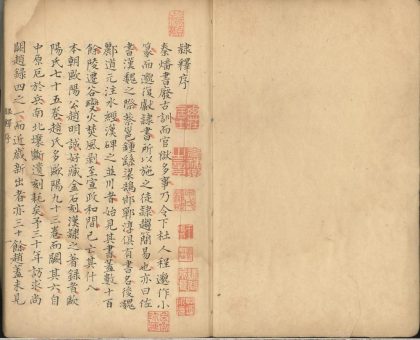 隸釋序
秦燔書廢古訓而官獄多事乃令下杜人程邈作小
篆而邈復獻隸書所以施之徒隸趨簡易也亦曰佐
書漢魏之際蔡邕鍾繇梁鵠邯鄲淳俱有書名後魏
酈道元注水經漢碑之並川者始見其書蓋數十百
餘陵遷谷變火焚風剝至宣政和間已亡其什八
本朝歐陽公趙明誠好藏金石刻漢隸之著錄者歐
陽氏七十五卷趙氏多歐陽九十三卷而闕其六自
中原厄於兵南北壤斷遺刻耗矣予三十年訪求尚
闕趙錄四之一而近歲新出者亦三十餘趙蓋未見
隸釋序